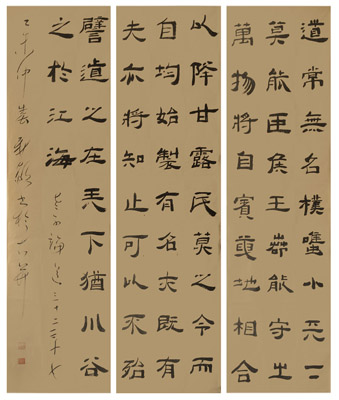 道常無名樸雖小天下
莫能臣侯王若能守之
萬物將自賓天地相合
以降甘露民莫之令而
自均始製有名既有
夫亦將知止可以不殆
譬道之在天下猶川谷
之於江海
老子論道三十二
仲春書於